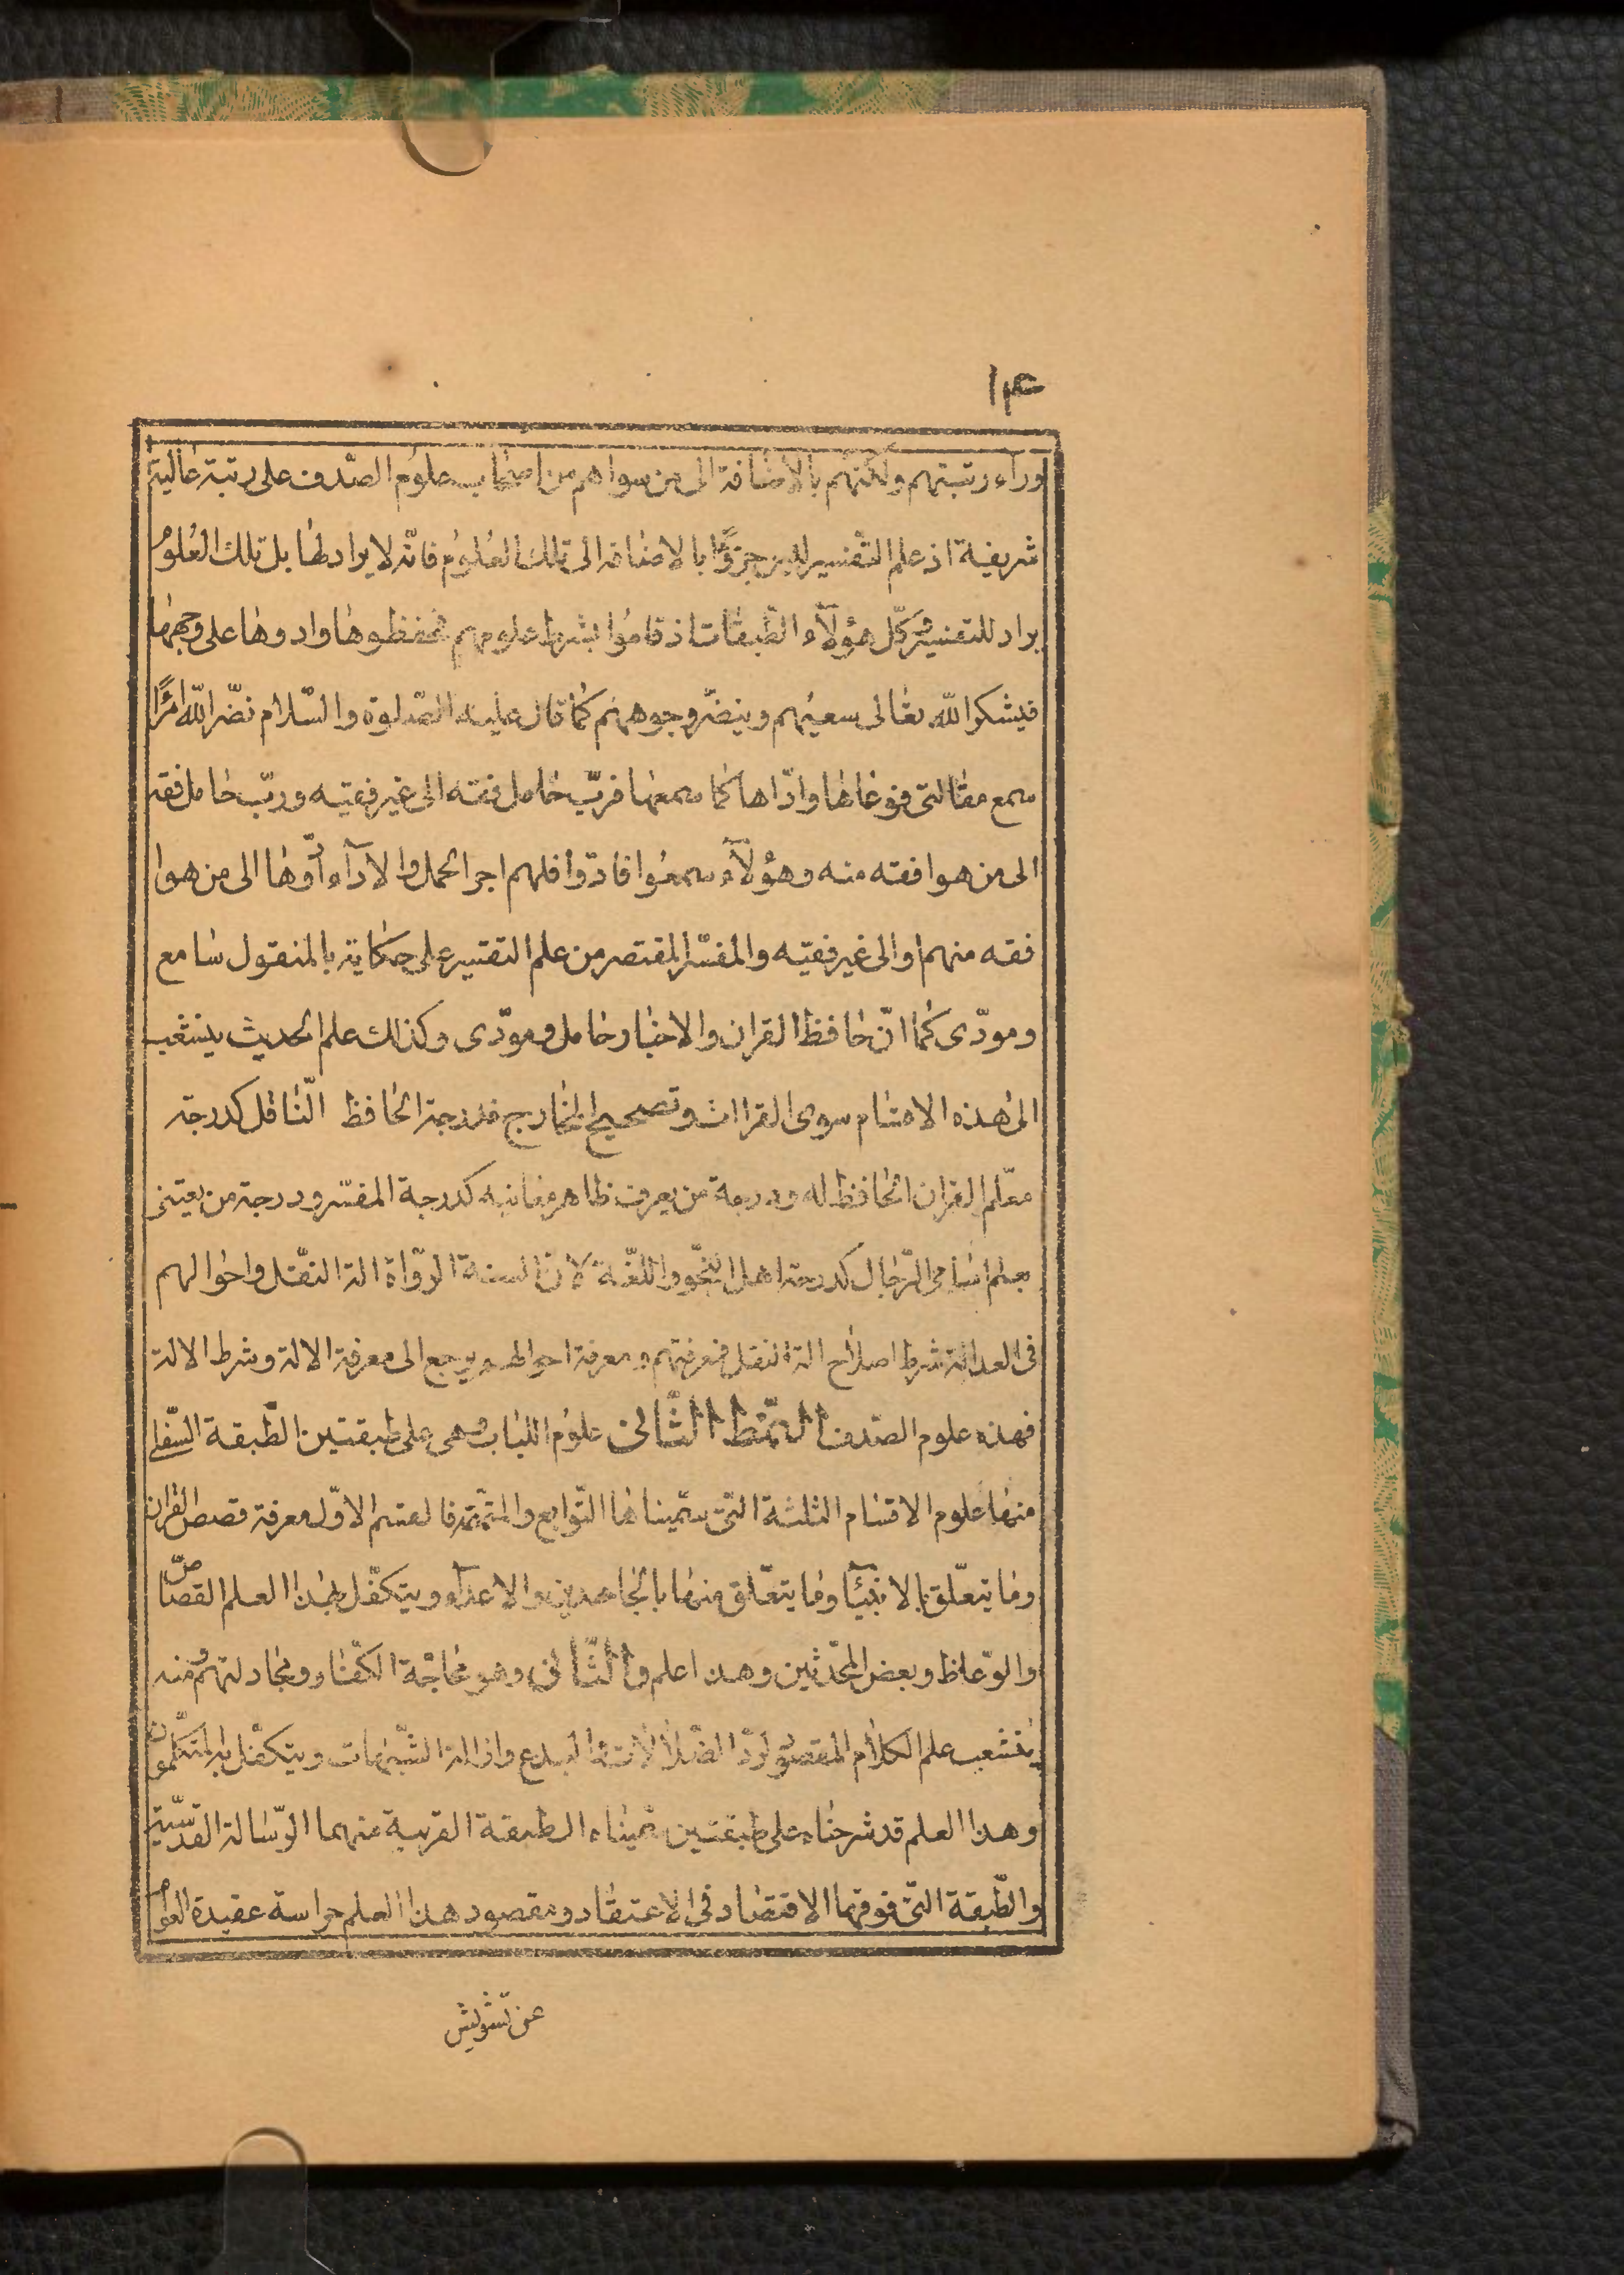 ١۴
ورآء رتبتهم ولكنّهم بالاضافة الى من سواهم من اصحاب علوم الصّدف على رتبة عالية
شريفة اذ علم التّفسير لغير جزوًا بالاضافة الى تلك العلوم فانّه لا يراد لها بل تلك العلوم
يراد للتفسير وكلّ هؤلآء الطّبقات اذ قاموا بشرط علومهم فحفظوها وادوها على وجهها
فيشكر اللّه تعالى سعيهم وينضّر وجوههم كما قال عليه الصّلوة والسّلام نضّر اللّه امرًا
سمع مقالتى فوعاها وادّاها كما سمعها فربّ حامل فقه الى غير فقيه وربّ حامل فقه
الى من هو افقه منه وهؤلآء سمعوا فادّوا فلهم اجر الحمل والادآء ادّوها الى من هو ا
فقه منهم او الى غير فقيه والمفسّر المقتصر من علم التفسير على حكاية بالمنقول سامع
ومودّى كما انّ حافظ القران والاخبار حامل ومودّى وكذلك علم الحديث ينشعب
الى هذه الاقسام سوى القراات وتصحيح المخارج فدرجة الحافظ النّاقل كدرجة
معلّم القران الحافظ له ودرجة من يعرف ظاهر معانيه كدرجة المفسّر ودرجة من يعتنى
بعلم اسامى الرّجال كدرجة اهل النّحو واللّغة لانّ السنة الرّواة الة النقل واحوالهم
فى العدالة شرط اصلاح الة النقل فمعرفتهم ومعرفة احوالهم يرجع الى معرفة الالة وشرط الالة
فهذه علوم الصّدف النّمط الثّانى علوم اللّباب وهى على طبقتين الطّبقة السّفلى
منها علوم الاقسام الثلثة الّتى سمّيناها التّوابع والمتمّمة فالقسم الاوّل معرفة قصص القران
وما يتعلّق بالانبيآء وما يتعلّق منها بالجاحدين والاعدآء ويتكفّل بهذا العلم القصّاص
والوعّاظ وبعض المحدّثين وهذا علم والثّانى وهو محاجّة الكفّار ومجادلتهم ومنه
ينشعب علم الكلام المقصود لردّ الضّلالات والبدع وازالة الشّبهات ويتكفّل به المتكلّمون
وهذا العلم قد شرحناه على طبقتين سمّيناه الطبقة القريبة منهما الرّسالة القدسيّة
والطّبقة الّتى فوقهما الاقتصاد فى الاعتقاد ومقصود هذا العلم حراسة عقيدة العوام
عن تشويش